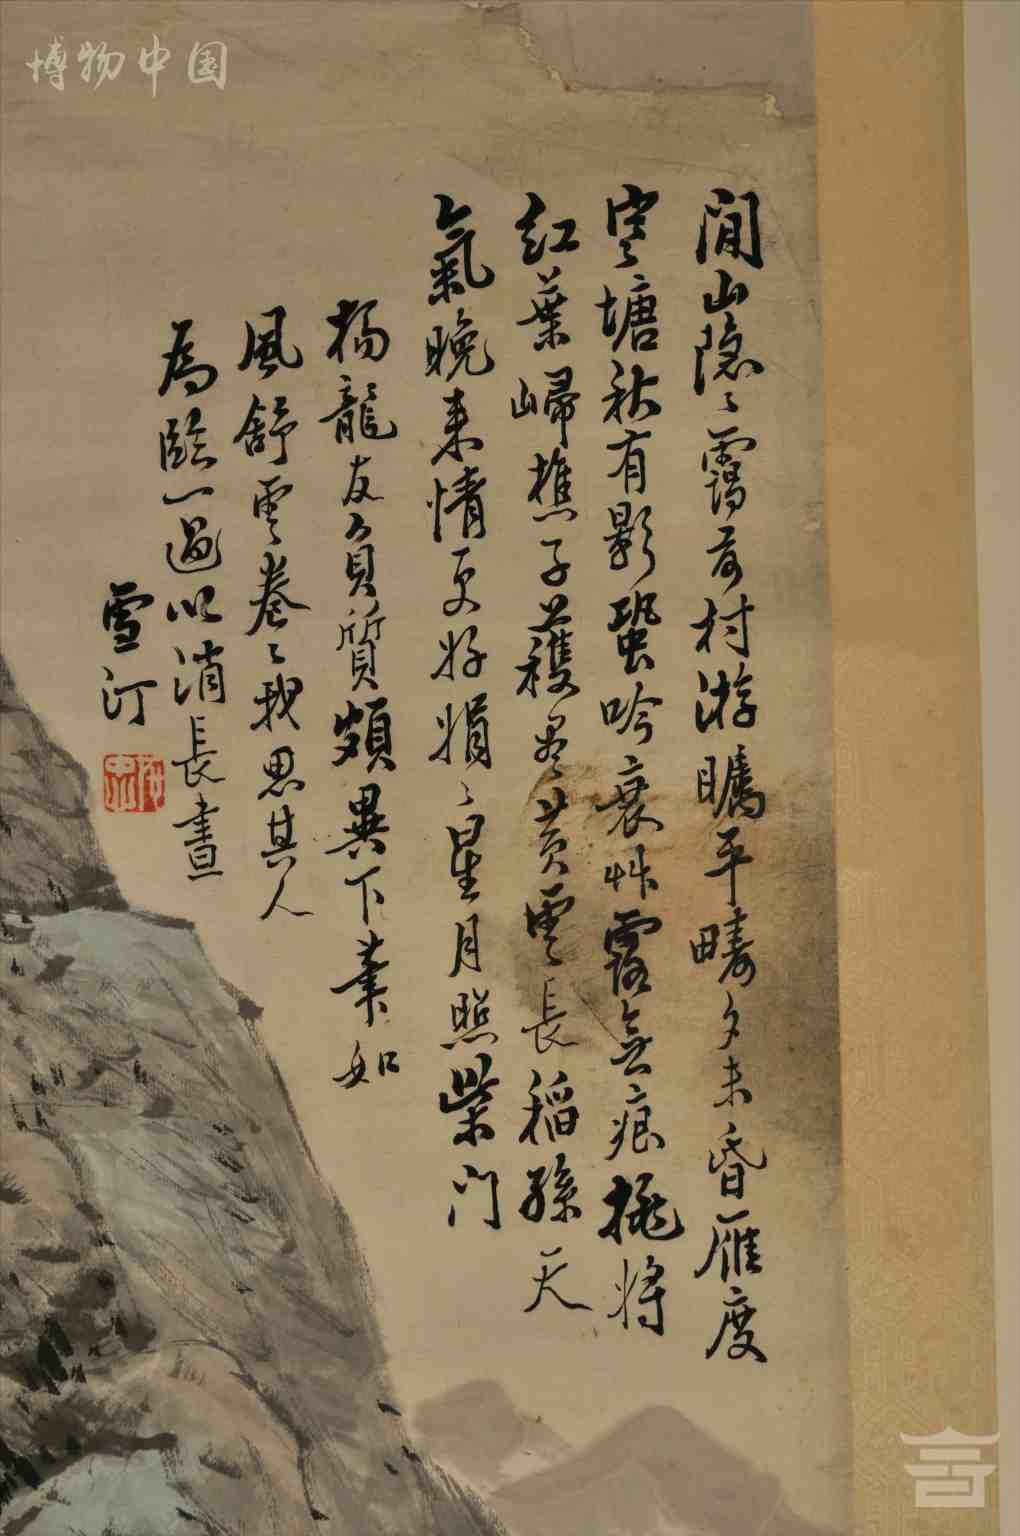 博物中国
閒山隐〻靄前村游矚平疇夕未昏雁度
寒塘秋有影蛩吟衰艸露無痕挑將
紅葉歸樵子穫盡黃雲長稻孫天
氣晚来情更好娟〻星月照柴门
楊龍友負質頗異下筆如
風舒雲卷〻我思其人
為臨一過以消長晝
雪汀